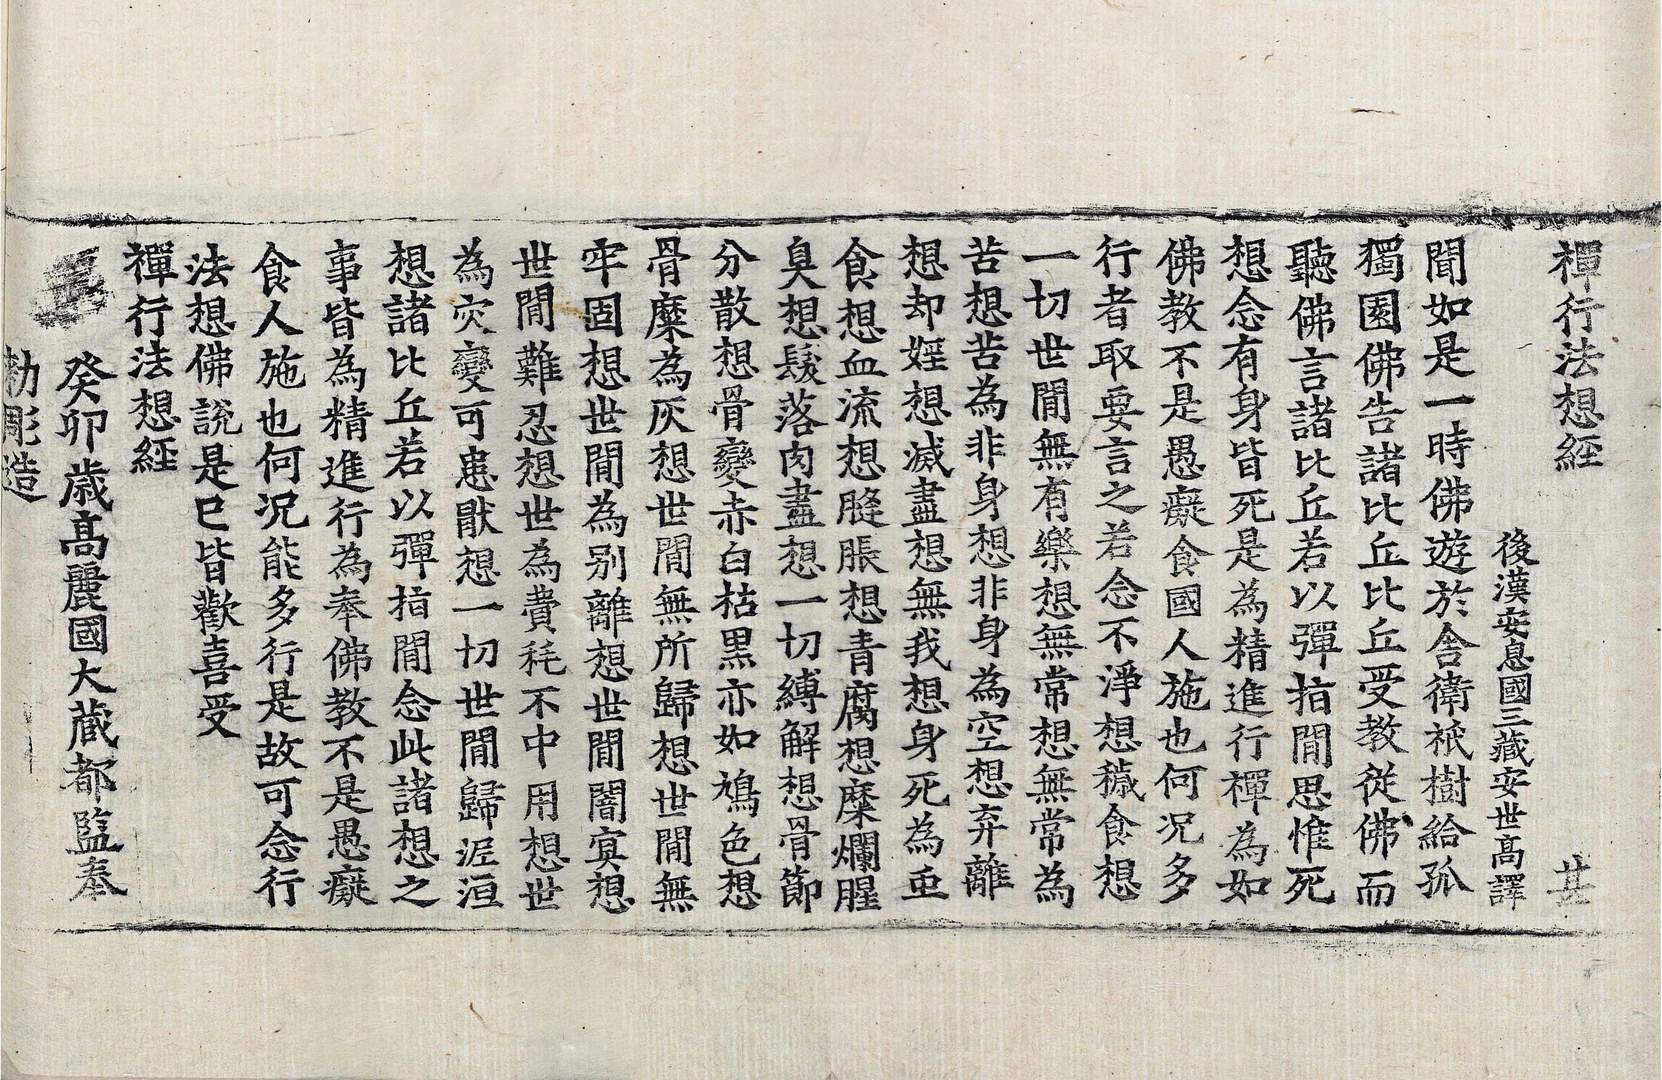 禪行法想經 甚
後漢安息國三藏安世高譯
聞如是一時佛遊於舍衛祇樹給孤
獨園佛告諸比丘比丘受教從佛而
聽佛言諸比丘若以彈指間思惟死
想念有身皆死是為精進行禪為如
佛教不是愚癡食國人施也何況多
行者取要言之若念不淨想穢食想
一切世閒無有樂想無常想無常為
苦想苦為非身想非身為空想弃離
想却婬想滅盡想無我想身死為虫
食想血流想膖脹想青腐想糜爛腥
臭想髮落肉盡想一切縛解想骨節
分散想骨變赤白枯黑亦如鳩色想
骨糜為灰想世閒無所歸想世閒無
牢固想世閒為別離想世閒闇冥想
世閒難忍想世為費耗不中用想世
為灾變可患猒想一切世閒歸泥洹
想諸比丘若以彈指閒念此諸想之
事皆為精進行為奉佛教不是愚癡
食人施也何況能多行是故可念行
法想佛說是已皆歡喜受
禪行法想經
癸卯歲高麗國大藏都監奉
勅彫造